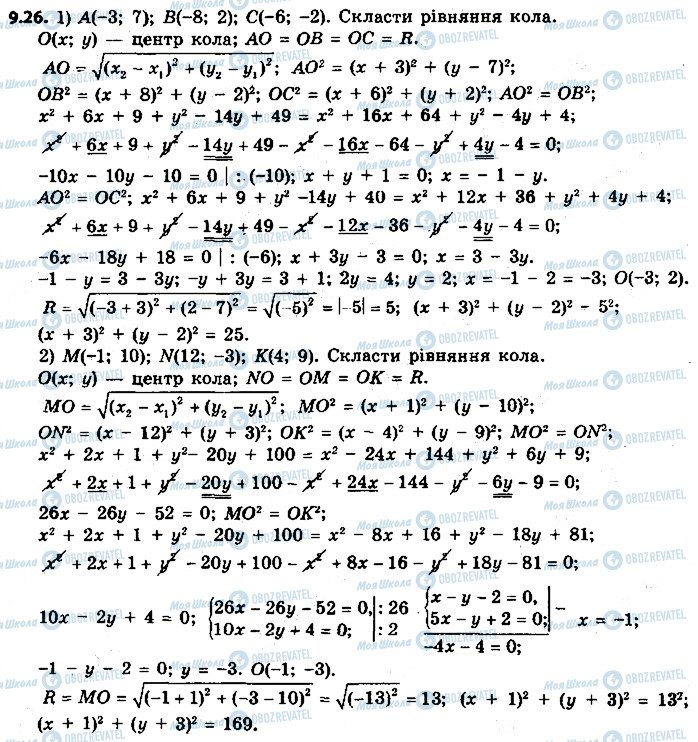 9.26. 1) A(−3; 7); B(−8; 2); C(−6; −2). Скласти рівняння кола.
O(x; y) — центр кола; AO = OB = OC = R.
AO = √((x₂ − x₁)² + (y₂ − y₁)²; AO² = (x + 3)² + (y − 7)²;
OB² = (x + 8)² + (y − 2)²; OC² = (x + 6)² + (y + 2)²; AO² = OB²;
x² + 6x + 9 + y² − 14y + 49 = x² + 16x + 64 + y² − 4y + 4;
x² + 6x + 9 + y² − 14y + 49 − x² − 16x − 64 − y² + 4y − 4 = 0;
−10x − 10y − 10 = 0 | : (−10); x + y + 1 = 0; x = − 1 − y.
AO² = OC²; x² + 6x + 9 + y² −14y + 40 = x² + 12x + 36 + y² + 4y + 4;
x² + 6x + 9 + y² − 14y + 49 − x² − 12x − 36 − y² − 4y − 4 = 0;
−6x − 18y + 18 = 0 | : (−6); x + 3y − 3 = 0; x = 3 − 3y.
−1 − y = 3 − 3y; −y + 3y = 3 + 1; 2y = 4; y = 2; x = −1 − 2 = −3; O(−3; 2).
R = √((−3 + 3)² + (2 − 7)²) = √((−5)²) = |−5| = 5; (x + 3)² + (y − 2)² − 5²;
(x + 3)² + (y − 2)² = 25.
2) M(−1; 10); N(12; −3); K(4; 9). Скласти рівняння кола.
O(x; y) — центр кола; NO = OM = OK = R.
MO = √((x₂ − x₁)² + (y₂ − y₁)²; MO² = (x + 1)² + (y − 10)²;
ON² = (x − 12)² + (y + 3)²; OK² = (x − 4)² + (y − 9)²; MO² = ON²;
x² + 2x + 1 + y² − 20y + 100 = x² − 24x + 144 + y² + 6y + 9;
x² + 2x + 1 + y² − 20y + 100 − x² + 24x − 144 − y² − 6y − 9 = 0;
26x − 26y − 52 = 0; MO² = OK²;
x² + 2x + 1 + y² − 20y + 100 = x² − 8x + 16 + y² − 18y + 81;
x² + 2x + 1 + y² − 20y + 100 − x² + 8x − 16 − y² + 18y − 81 = 0;
10x − 2y + 4 = 0; {26x − 26y − 52 = 0, | : 26 {x − y − 2 = 0, − x = −1;
{10x − 2y + 4 = 0; | : 2 {5x − y + 2 = 0;
−4x − 4 = 0;
−1 − y − 2 = 0; y = −3. O(−1; −3).
R = MO = √((−1 + 1)² + (−3 − 10)²) = √((−13)²) = 13; (x + 1)² + (y + 3)² = 13²;
(x + 1)² + (y + 3)² = 169.